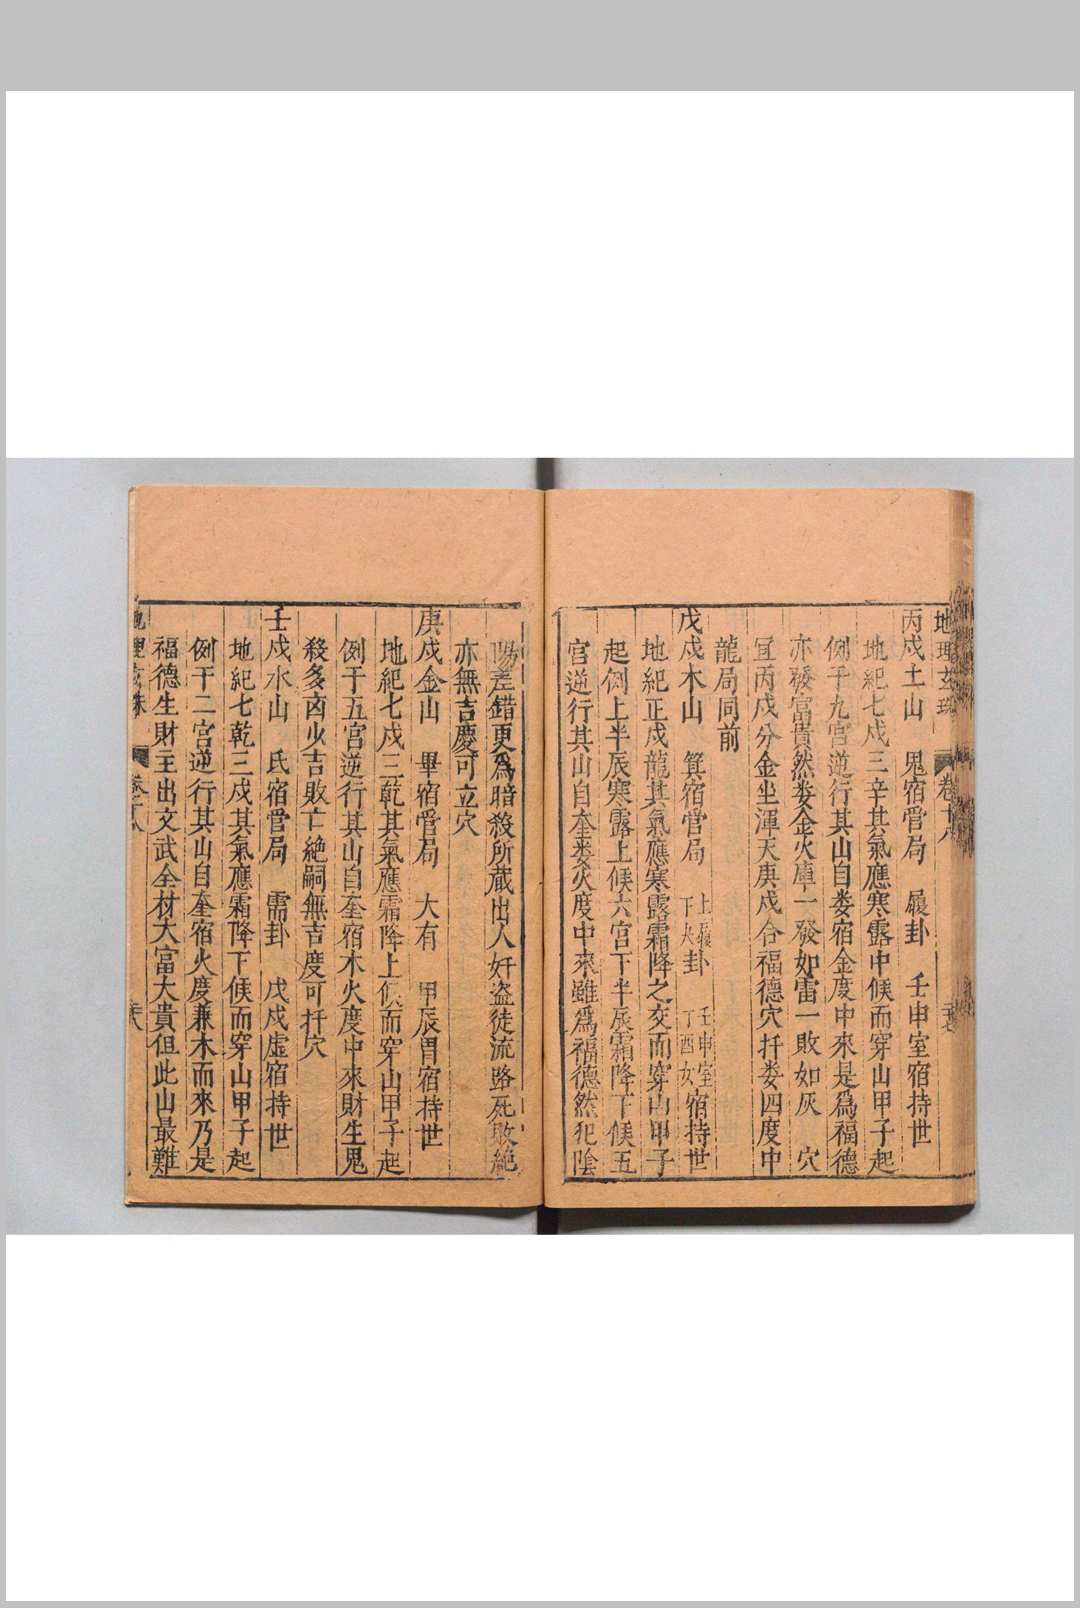 地理玄珠 卷十八
丙戍土山 鬼宿管局 履卦 壬申室宿持世
地紀七戍三辛其氣應寒露中候而穿山甲子起
例于九宮逆行其山自娄宿金度中來是爲福德
亦發富貴然娄金火庫一發如雷一敗如灰 穴
宜丙戍分金坐渾天庚戍合福德穴扦娄四度中
龍局同前
戊戍木山 箕宿管局 上履下夬卦 壬申室丁酉女宿持世
地紀正戍龍其氣應寒露霜降之交而穿山甲子
起例上半辰寒露上候六宮下半辰霜降下候五
宮逆行其山自奎娄火度中來雖爲福德然犯陰
陽差錯更爲暗殺所藏出人奸盗徒流路死敗絶
亦無吉慶可立穴
庚戍金山 畢宿管局 大有 甲辰胃宿持世
地紀七戍三乾其氣應霜降上候而穿山甲子起
例于五宮逆行其山自奎宿木火度中來財生鬼
殺多凶少吉敗亡絶嗣無吉度可扦穴
壬戍水山 氐宿管局 需卦 戊戍虚宿持世
地紀七乾三戍其氣應霜降下候而穿山甲子起
例于二宮逆行其山自奎宿火度兼木而來乃是
福德生財主出文武全材大富大貴但此山最難
地理玄珠 卷十八